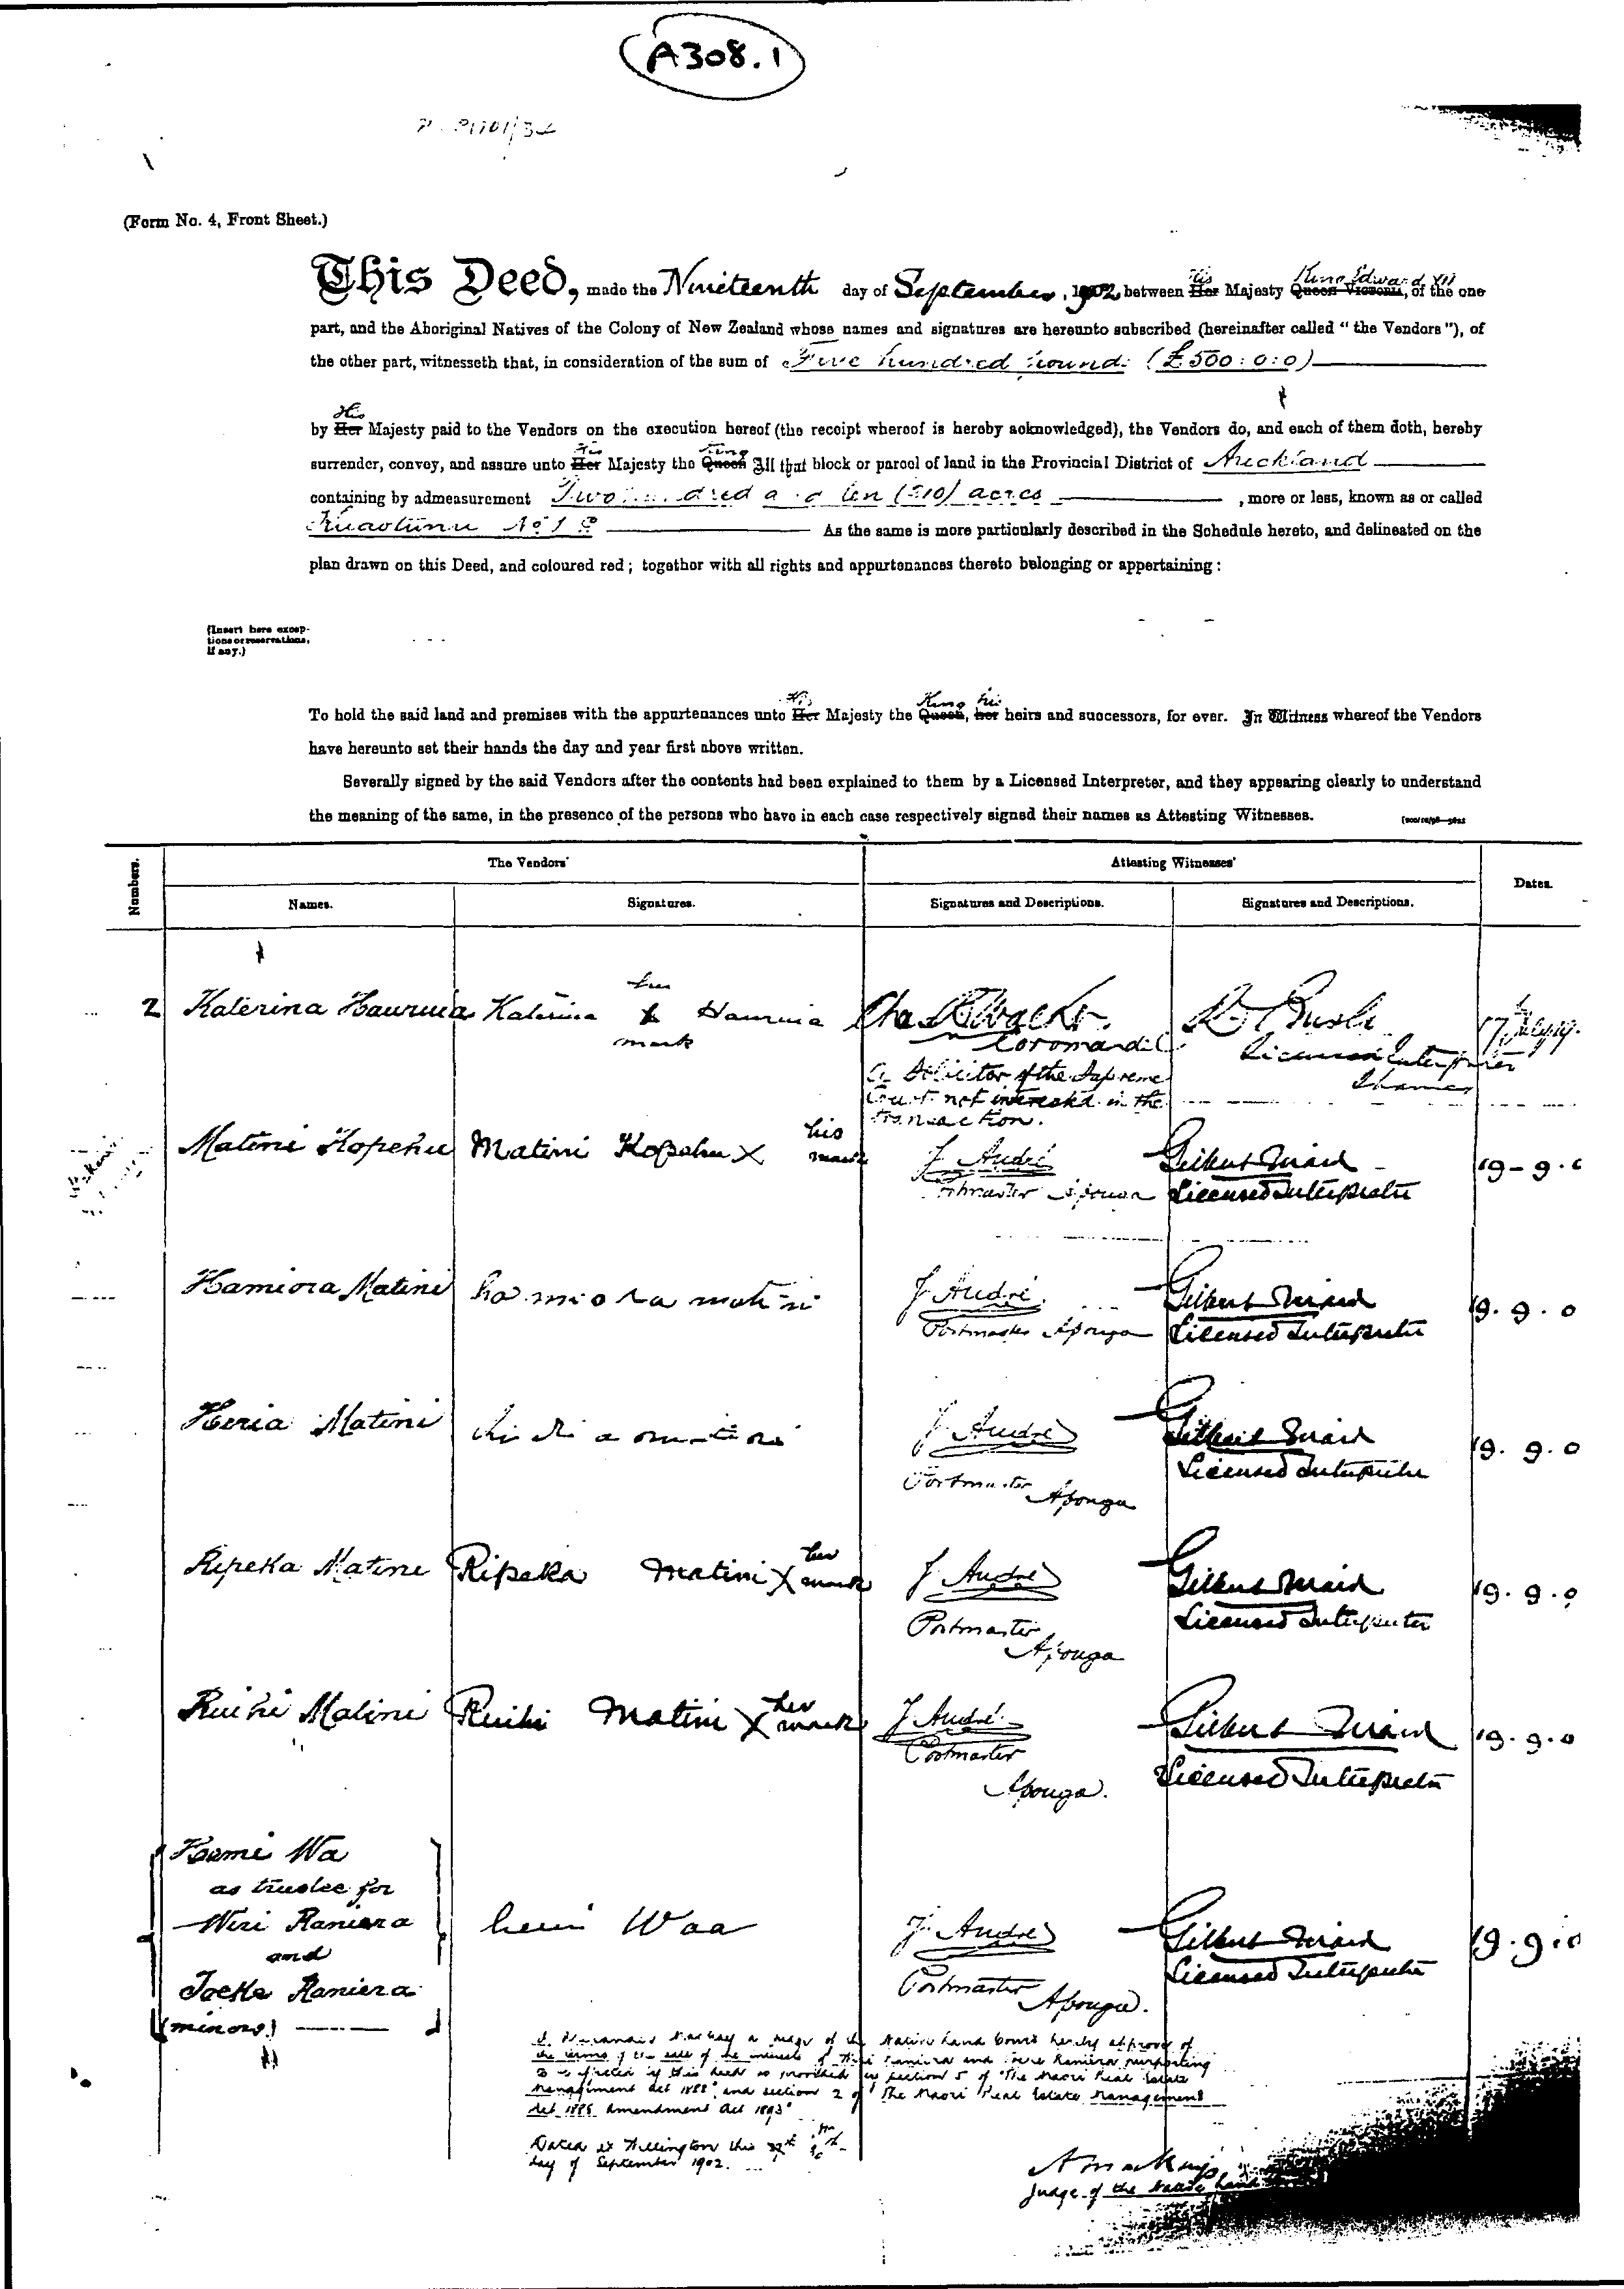 A308.1
(Form No. 4, Front Sheet.)
This Deed, made the Nineteenth day of September, 1902 between Her His Majesty Queen Victoria King Edward VII, of the one
part, and the Aboriginal Natives of the Colony of New Zealand whose names and signatures are hereunto subscribed (hereinafter called "the Vendors"), of
the other part, witnesseth that, in consideration of the sum of Five hundred pounds (£500:0:0)
His
by Her Majesty paid to the Vendors on the execution hereof (the receipt whereof is hereby acknowledged), the Vendors do, and each of them doth, hereby
His King
surrender, convey, and assure unto Her Majesty the Queen All that block or parcel of land in the Provincial District of Auckland
containing by admeasurement Two hundred and ten (210) acres, more or less, known as or called
Kuaotunu No 1 As the same is more particularly described in the Schedule hereto, and delineated on the
plan drawn on this Deed, and coloured red; together with all rights and appurtenances thereto belonging or appertaining:
(Insert here excep-
tions or reservations,
if any.)
His King his
To hold the said land and premises with the appurtenances unto Her Majesty the Queen, her heirs and successors, for ever. In Witness whereof the Vendors
have hereunto set their hands the day and year first above written.
Severally signed by the said Vendors after the contents had been explained to them by a Licensed Interpreter, and they appearing clearly to understand
the meaning of the same, in the presence of the persons who have in each case respectively signed their names as Attesting Witnesses.
Numbers. The Vendors' Attesting Witnesses' Dates.
Names. Signatures. Signatures and Descriptions. Signatures and Descriptions.
her
2 Katerina Hauruia Katerina x Hauruia
mark
Coromandel Licensed Interpreter
Thames
A Solicitor of the Supreme
Court not interested in the
transaction.
his
Matini Kopehu Matini Kopehu X mark J André Gilbert Mair 19-9-
Postmaster Aponga Licensed Interpreter
Hamiora Matini hamiora matini J André Gilbert Mair 19.9.0
Postmaster Aponga Licensed Interpreter
Heria Matini J André Gilbert Mair 19.9.0
Postmaster Licensed Interpreter
Aponga
her
Ripeka Matini Ripeka Matini X mark J André Gilbert Mair 19.9.0
Postmaster Licensed Interpreter
Aponga
her
Ruihi Matini Ruihi Matini X mark J André Gilbert Mair 19.9.0
Postmaster Licensed Interpreter
Aponga.
Hemi Wa
as trustee for
Wiri Raniera hemi Waa J André Gilbert Mair 19.9.0
and Licensed Interpreter
Raniera Postmaster Aponga.
(minors)
a Judge of the Native Land Court hereby approve of
the terms of the sale of the interests of Raniera and Raniera purporting
to be effected by this deed as provided by section 5 of "The Maori Real Estate
Management Act 1888" and section 2 of "The Maori Real Estate Management
Act 1888 Amendment Act 1893"
Dated at Wellington this
day of September 1902.
Judge of the Native Land